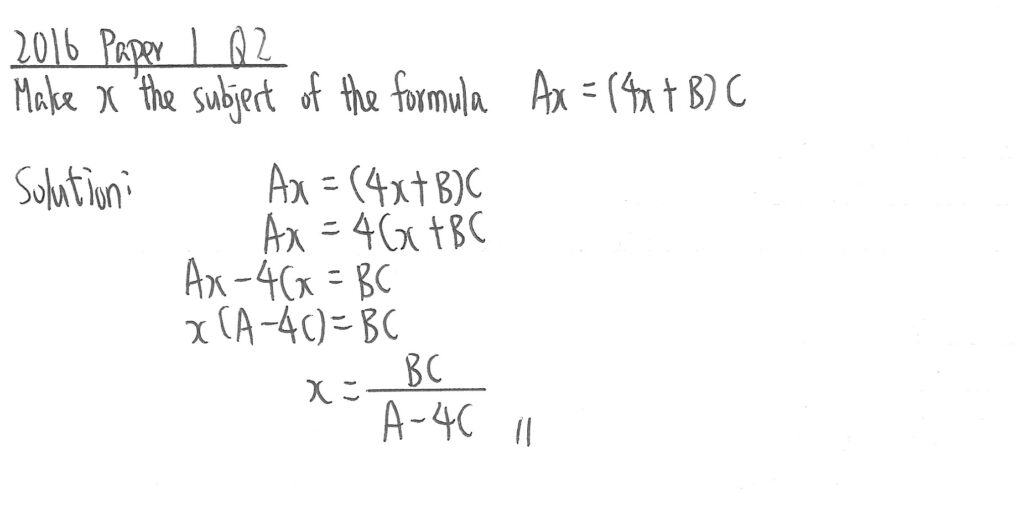 2016 Paper 1 Q2
Make x the subject of the formula Ax = (4x + B) C
Solution: Ax = (4x+B)C
Ax = 4Cx + BC
Ax - 4Cx = BC
x(A-4C) = BC
x = BC / A-4C //